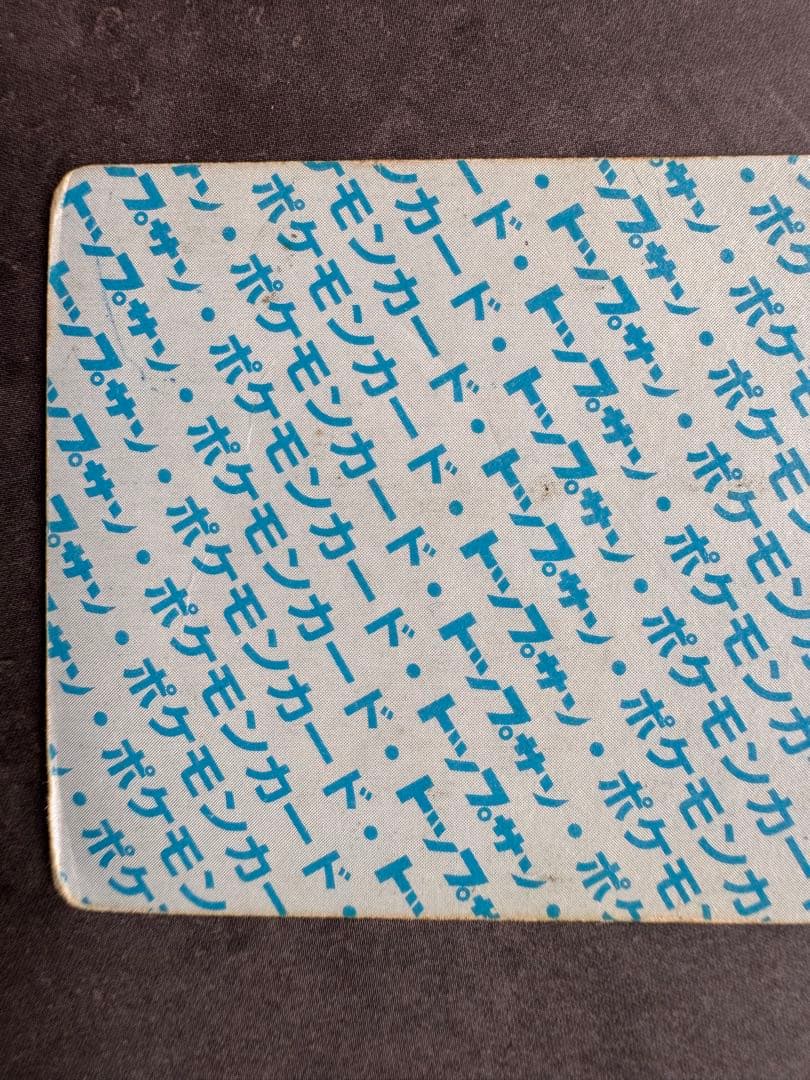 ・ポ
トップサン・ポケ
・トップサン・ポケモ
ード・トップサン・ポケモン
ンカード・トップサン・ポケモンカ
ケモンカード・トップサン・ポケモンカ
ポケモンカード・トップサン・ポケモンカ
サン・ポケモンカード・トップサン・ポケモン
ップサン・ポケモンカード・トップサン・ポケ
トップサン・ポケモンカード・トップサン・
トップサン・ポケモンカード・トップサ
ップサン・ポケモンカード・ト
プサン・ポケモンカード・
サン・ポケモンカー
・ポケモン
・ポケ